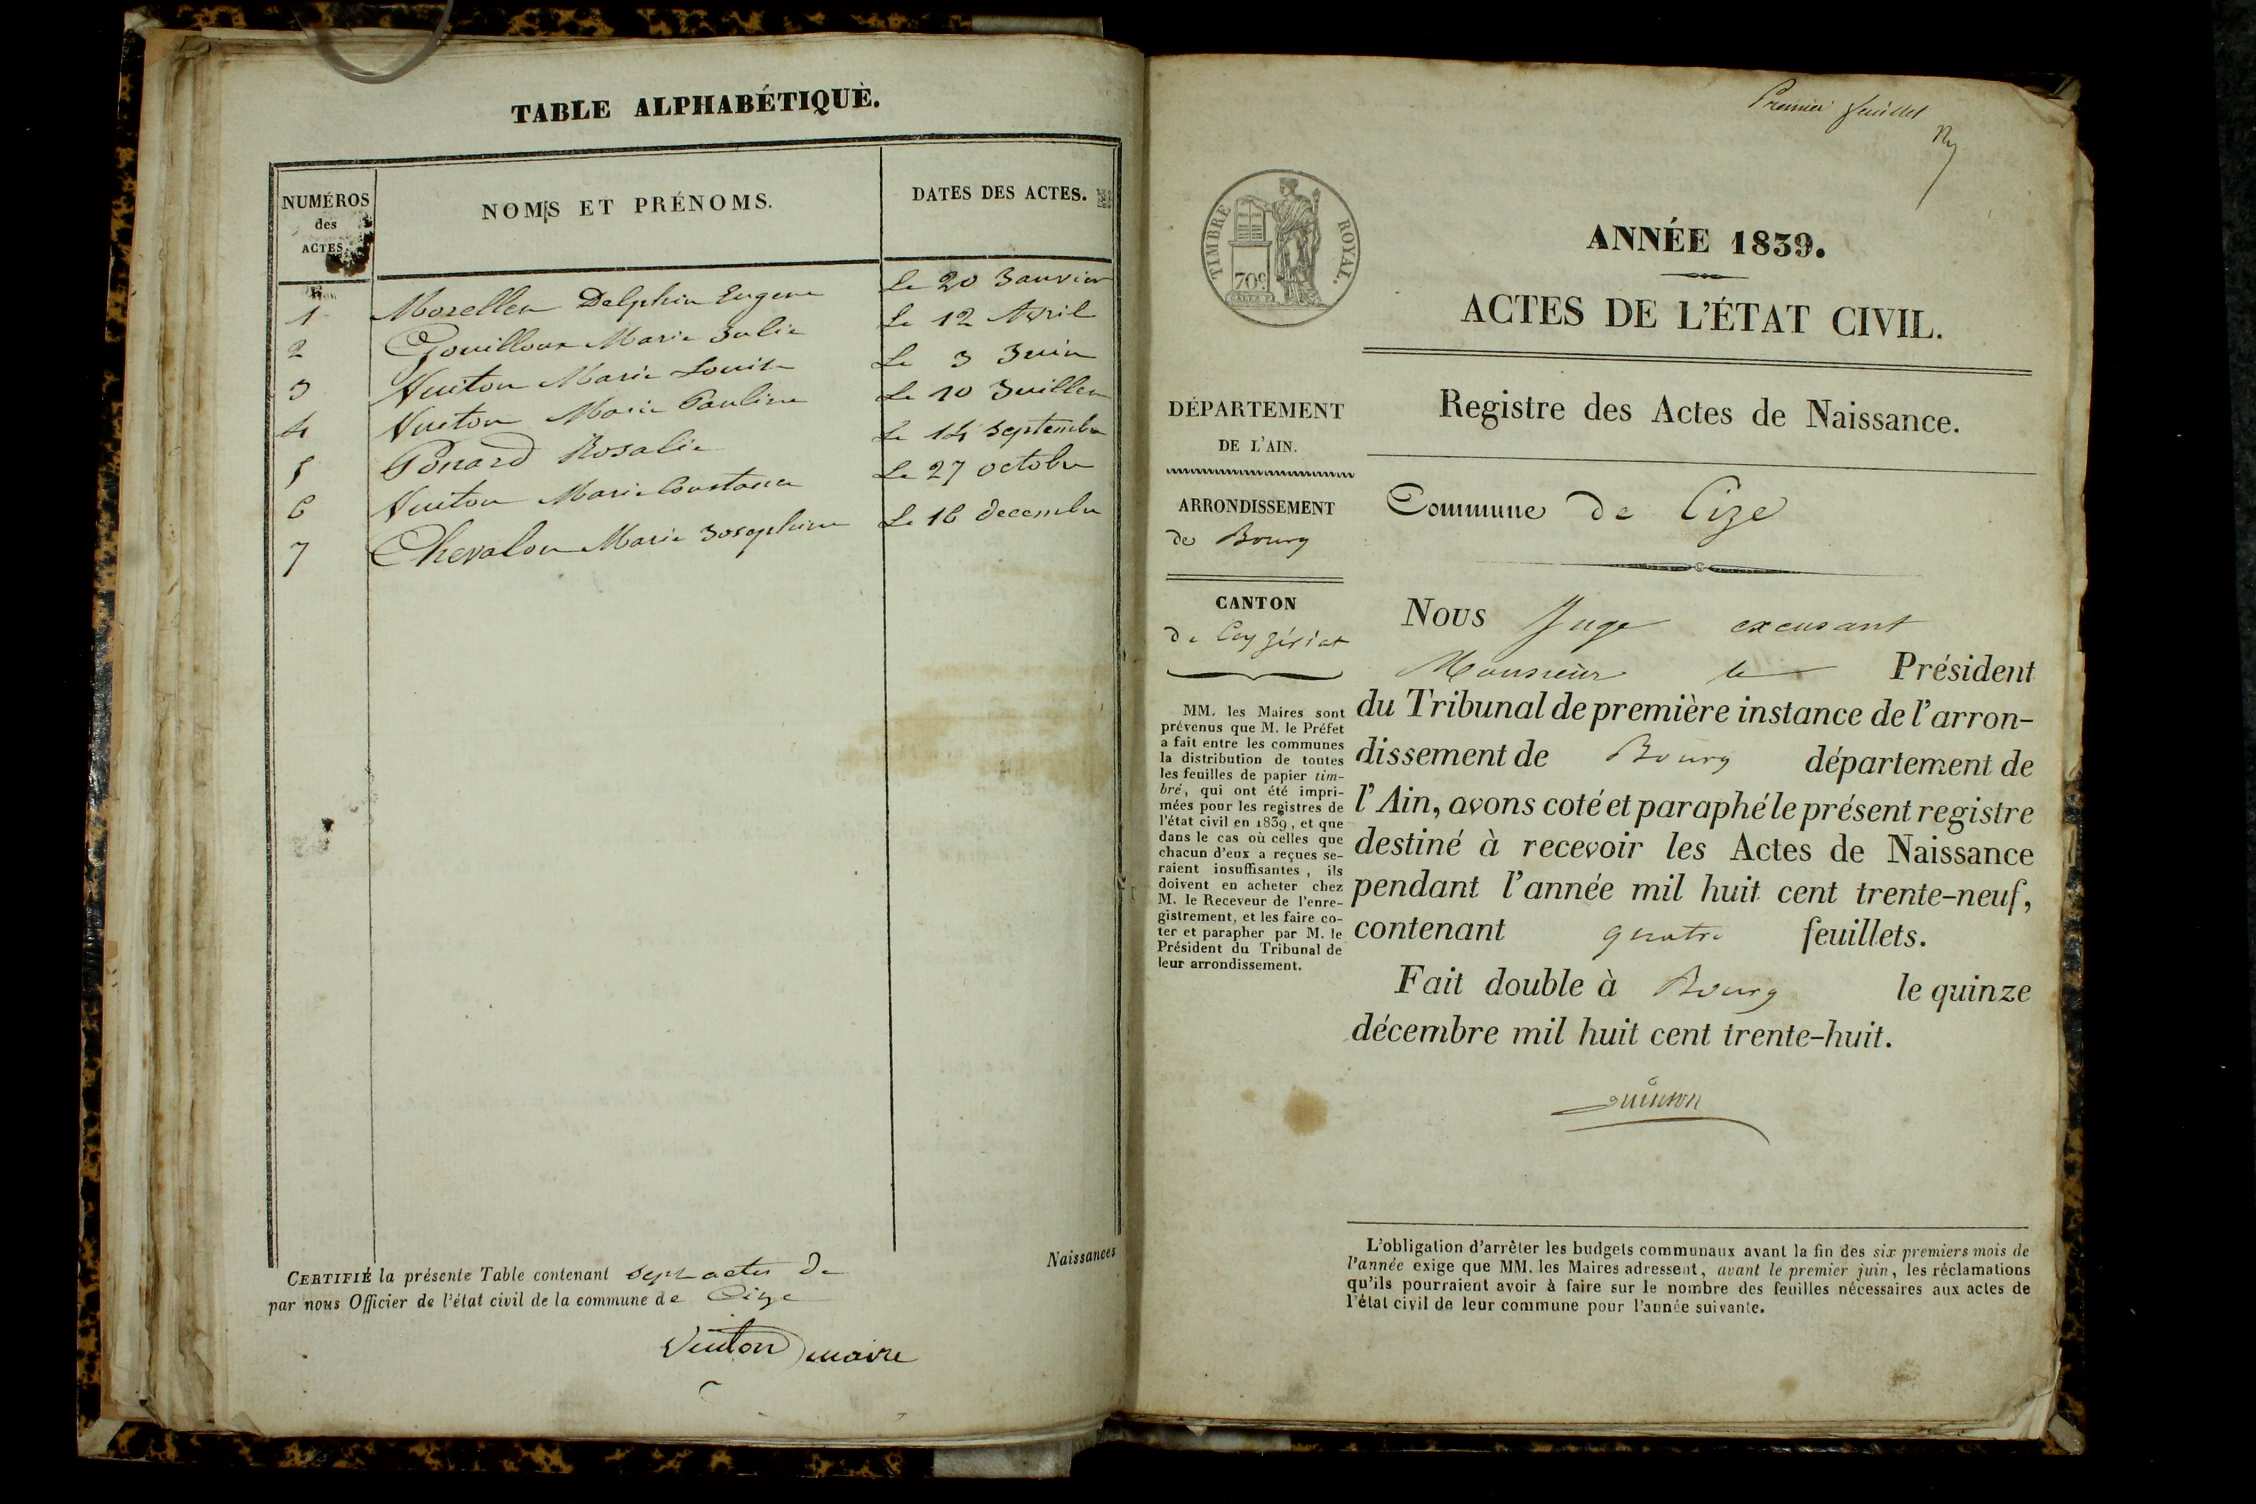 TABLE ALPHABÉTIQUE.
NUMÉROS
des
ACTES.
NOMS ET PRÉNOMS.
DATES DES ACTES.
1 Morellet Delphin Eugene le 20 Janvier
2 Gouilloux Marie Julie Le 12 Avril
3 Vuiton Marie Louise Le 3 Juin
4 Vuiton Marie Pauline Le 10 Juillet
5 Ponard Rosalie Le 14 Septembre
6 Vuiton Marie Constance Le 27 octobre
7 Chevalon Marie Josephine Le 16 decembre
Naissances
CERTIFIÉ la présente Table contenant Sept actes de
par nous Officier de l'état civil de la commune de Cize
Vuiton maire
Premier feuillet
TIMBRE ROYAL.
70c
ANNÉE 1839.
ACTES DE L'ÉTAT CIVIL.
Registre des Actes de Naissance.
DÉPARTEMENT
DE L'AIN.
ARRONDISSEMENT
de Bourg
CANTON
de Ceyzériat
MM. les Maires sont
prévenus que M. le Préfet
a fait entre les communes
la distribution de toutes
les feuilles de papier tim-
bré, qui ont été impri-
mées pour les registres de
l'état civil en 1839, et que
dans le cas où celles que
chacun d'eux a reçues se-
raient insuffisantes, ils
doivent en acheter chez
M. le Receveur de l'enre-
gistrement, et les faire co-
ter et parapher par M. le
Président du Tribunal de
leur arrondissement.
Commune de Cize
Nous Juge excusant
Monsieur le Président
du Tribunal de première instance de l'arron-
dissement de Bourg département de
l'Ain, avons coté et paraphé le présent registre
destiné à recevoir les Actes de Naissance
pendant l'année mil huit cent trente-neuf,
contenant quatre feuillets.
Fait double à Bourg le quinze
décembre mil huit cent trente-huit.
L'obligation d'arrêter les budgets communaux avant la fin des six premiers mois de
l'année exige que MM. les Maires adressent, avant le premier juin, les réclamations
qu'ils pourraient avoir à faire sur le nombre des feuilles nécessaires aux actes de
l'état civil de leur commune pour l'année suivante.